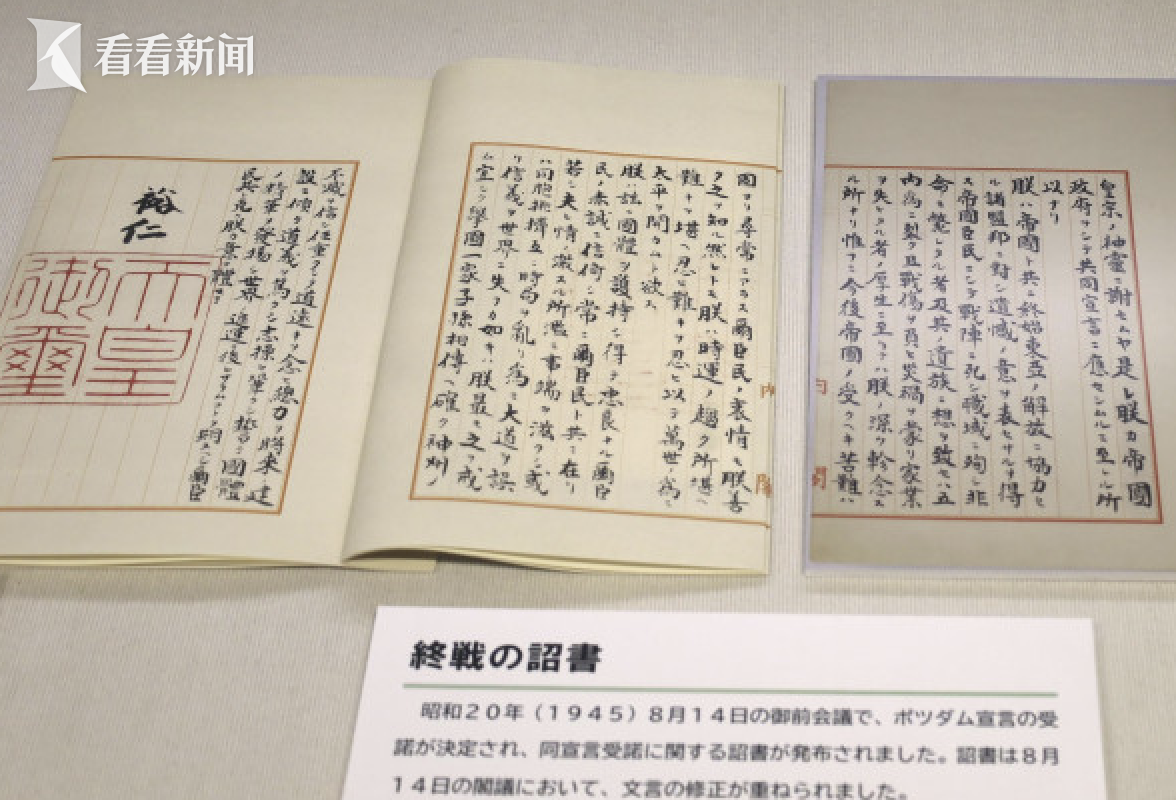 看看新闻
皇宗ノ神靈ニ謝セムヤ是レ朕カ帝國
政府ヲシテ共同宣言ニ應セシムルニ至レル所
以ナリ
朕ハ帝國ト共ニ終始東亞ノ解放ニ協力セ
ル諸盟邦ニ對シ遺憾ノ意ヲ表セサルヲ得
ス帝國臣民ニシテ戰陣ニ死シ職域ニ殉シ非
命ニ斃レタル者及其ノ遺族ニ想ヲ致セハ五
內爲ニ裂ク且戰傷ヲ負ヒ災禍ヲ蒙リ家業
ヲ失ヒタル者ノ厚生ニ至リテハ朕ノ深ク軫念ス
ル所ナリ惟フニ今後帝國ノ受クヘキ苦難ハ
固ヨリ尋常ニアラス爾臣民ノ衷情モ朕善
ク之ヲ知ル然レトモ朕ハ時運ノ趨ク所堪ヘ
難キヲ堪ヘ忍ヒ難キヲ忍ヒ以テ萬世ノ爲ニ
太平ヲ開カムト欲ス
朕ハ茲ニ國體ヲ護持シ得テ忠良ナル爾臣
民ノ赤誠ニ信倚シ常ニ爾臣民ト共ニ在リ
若シ夫レ情ノ激スル所濫ニ事端ヲ滋クシ或
ハ同胞排擠互ニ時局ヲ亂リ爲ニ大道ヲ誤
リ信義ヲ世界ニ失フカ如キハ朕最モ之ヲ戒
ム宜シク擧國一家子孫相傳ヘ確ク神州ノ
不滅ヲ信シ任重クシテ道遠キヲ念ヒ總力ヲ將來ノ建
設ニ傾ケ道義ヲ篤クシ志操ヲ鞏クシ誓テ國體
ノ精華ヲ發揚シ世界ノ進運ニ後レサラムコトヲ期スヘシ爾臣
民其レ克ク朕カ意ヲ體セヨ
裕仁
天皇
御璽
終戦の詔書
昭和20年（1945）8月14日の御前会議で、ポツダム宣言の受
諾が決定され、同宣言受諾に関する詔書が発布されました。詔書は8月
14日の閣議において、文言の修正が重ねられました。